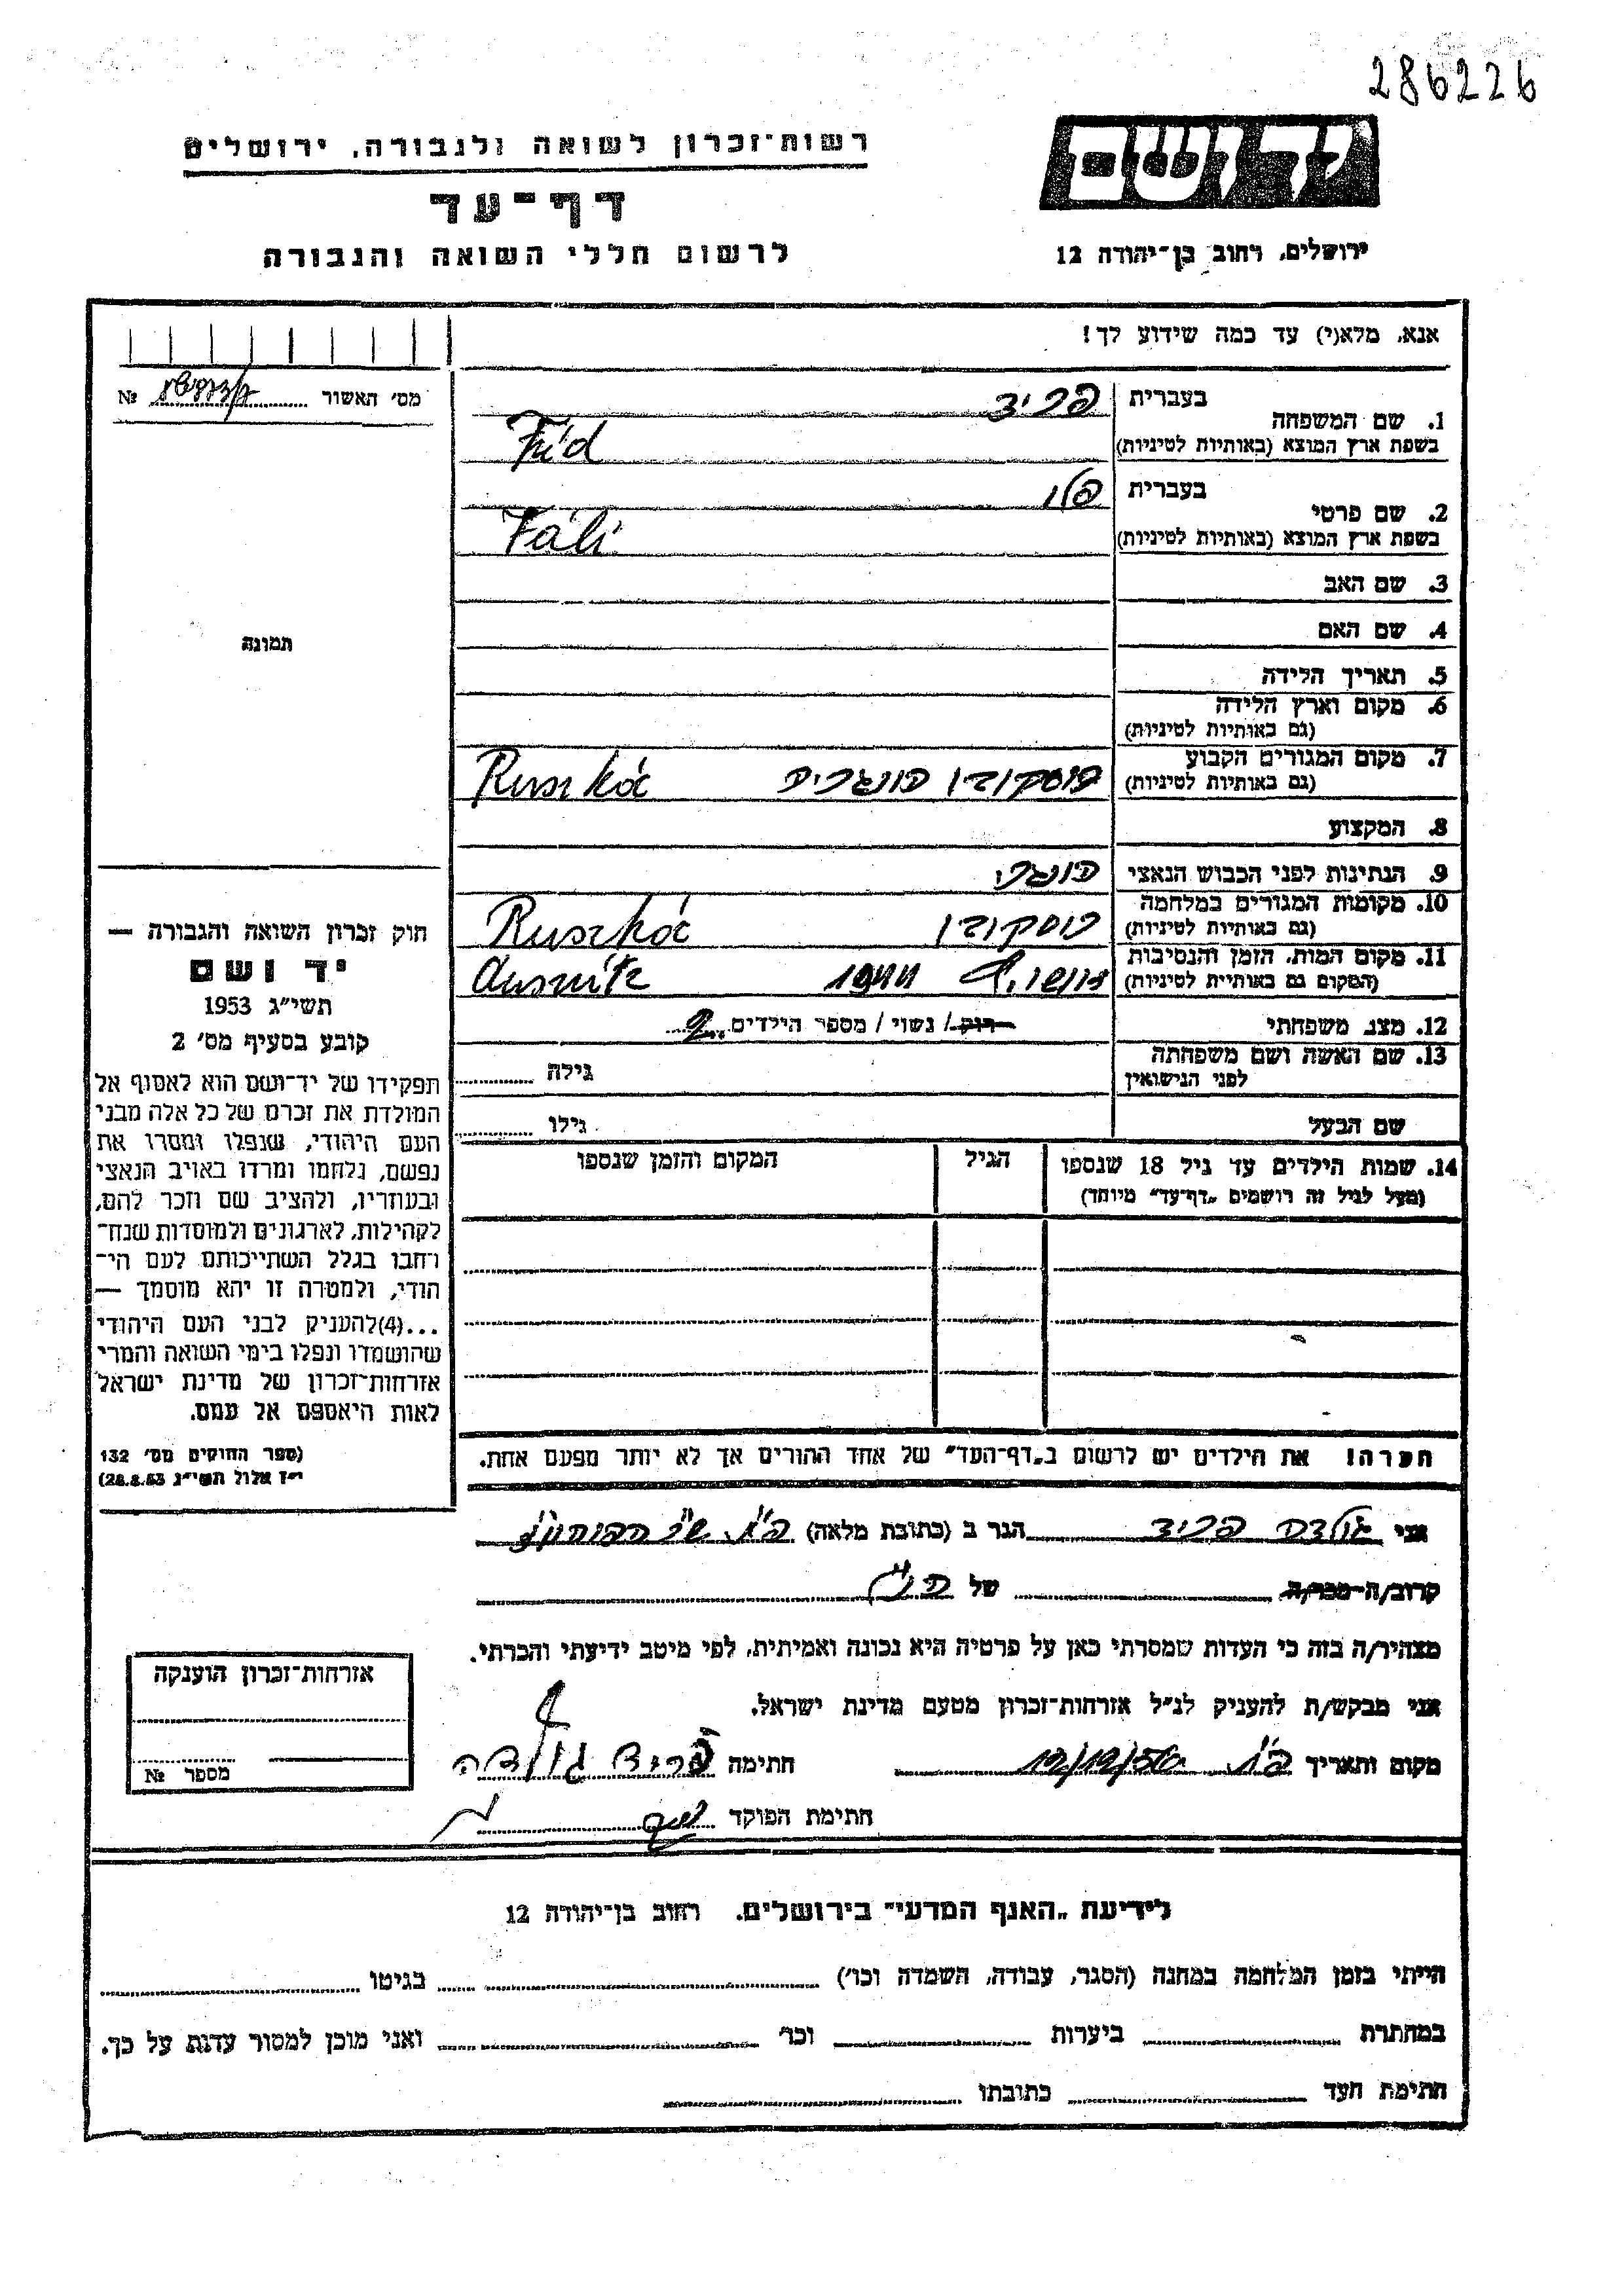 286226
יד ושם
רשות־זכרון לשואה ולגבורה, ירושלים
דף־עד
לרשום חללי השואה והגבורה
ירושלים, רחוב בן־יהודה 12
אנא, מלא(י) עד כמה שידוע לך!
מס׳ האשור № 
1. שם המשפחה
בעברית פריד
בשפת ארץ המוצא (באותיות לטיניות) Fríd
2. שם פרטי
בעברית פלי
בשפת ארץ המוצא (באותיות לטיניות) Fáli
3. שם האב
4. שם האם
5. תאריך הלידה
6. מקום וארץ הלידה
(גם באותיות לטיניות)
7. מקום המגורים הקבוע
(גם באותיות לטיניות) Ruszkóc
8. המקצוע
9. הנתינות לפני הכבוש הנאצי הונגרי
10. מקומות המגורים במלחמה
(גם באותיות לטיניות) Ruszkóc
11. מקום המות, הזמן והנסיבות
(המקום גם באותיית לטיניות) 1944 Ausvitz
12. מצב משפחתי רוק / נשוי / מספר הילדים 2
13. שם האשה ושם משפחתה
לפני הנישואין
גילה
שם הבעל גילו
14. שמות הילדים עד גיל 18 שנספו
(מעל לגיל זה רושמים „דף־עד״ מיוחד)
הגיל
המקום והזמן שנספו
הערה! את הילדים יש לרשום ב„דף־העד״ של אחד ההורים אך לא יותר מפעם אחת.
תמונה
חוק זכרון השואה והגבורה —
יד ושם
תשי״ג 1953
קובע בסעיף מס׳ 2
תפקידו של יד־ושם הוא לאסוף אל
המולדת את זכרם של כל אלה מבני
העם היהודי, שנפלו ומסרו את
נפשם, נלחמו ומרדו באויב הנאצי
ובעוזריו, ולהציב שם וזכר להם,
לקהילות, לארגונים ולמוסדות שנח־
רחבו בגלל השתייכותם לעם הי־
הודי, ולמטרה זו יהא מוסמך —
...(4) להעניק לבני העם היהודי
שהושמדו ונפלו בימי השואה והמרי
אזרחות־זכרון של מדינת ישראל
לאות היאספם אל עמם.
(ספר החוקים מס׳ 132
י״ז אלול תשי״ג 28.8.53)
אני גולדה פריד הגר ב (כתובת מלאה)
קרוב/ה־מכר/ה של
מצהיר/ה בזה כי העדות שמסרתי כאן על פרטיה היא נכונה ואמיתית, לפי מיטב ידיעתי והכרתי.
אני מבקש/ת להעניק לנ״ל אזרחות־זכרון מטעם מדינת ישראל.
מקום ותאריך חתימה פריד גולדה
חתימת הפוקד
אזרחות־זכרון הוענקה
מספר №
לידיעת „האגף המדעי״ בירושלים, רחוב בן־יהודה 12
הייתי בזמן המלחמה במחנה (הסגר, עבודה, השמדה וכו׳) בגיטו
במחתרת ביערות וכו׳ ואני מוכן למסור עדות על כך.
חתימת העד כתובתו